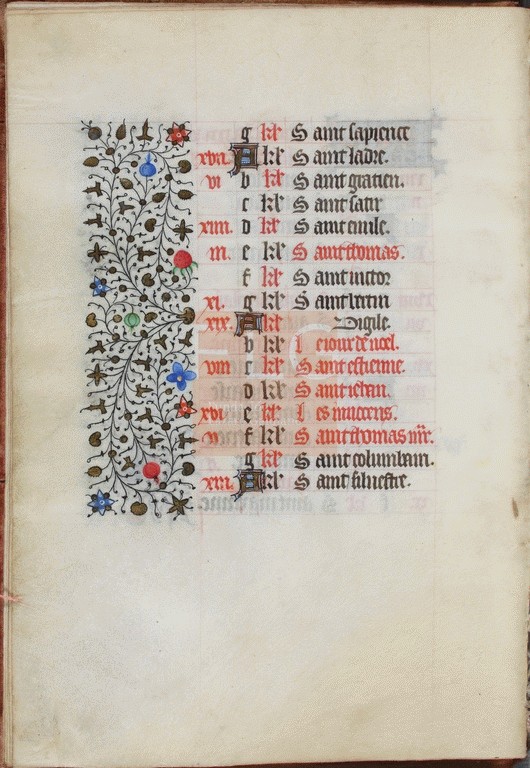 g kl' Saint sapience
xvii. A kl' Saint ladre.
vi b kl' Saint gratien.
c kl' Saint satir
xiiii. d kl' Saint emile.
iii. e kl' Saint thomas.
f kl' Saint victor
xi. g kl' Saint
xix. A kl' Vigile.
b kl' Le iour de noel.
viii c kl' Saint estienne.
d kl' Saint iehan.
xvi e kl' Les innocens.
v f kl' Saint thomas mr̄.
g kl' Saint columbain.
xiii. A kl' Saint siluestre.